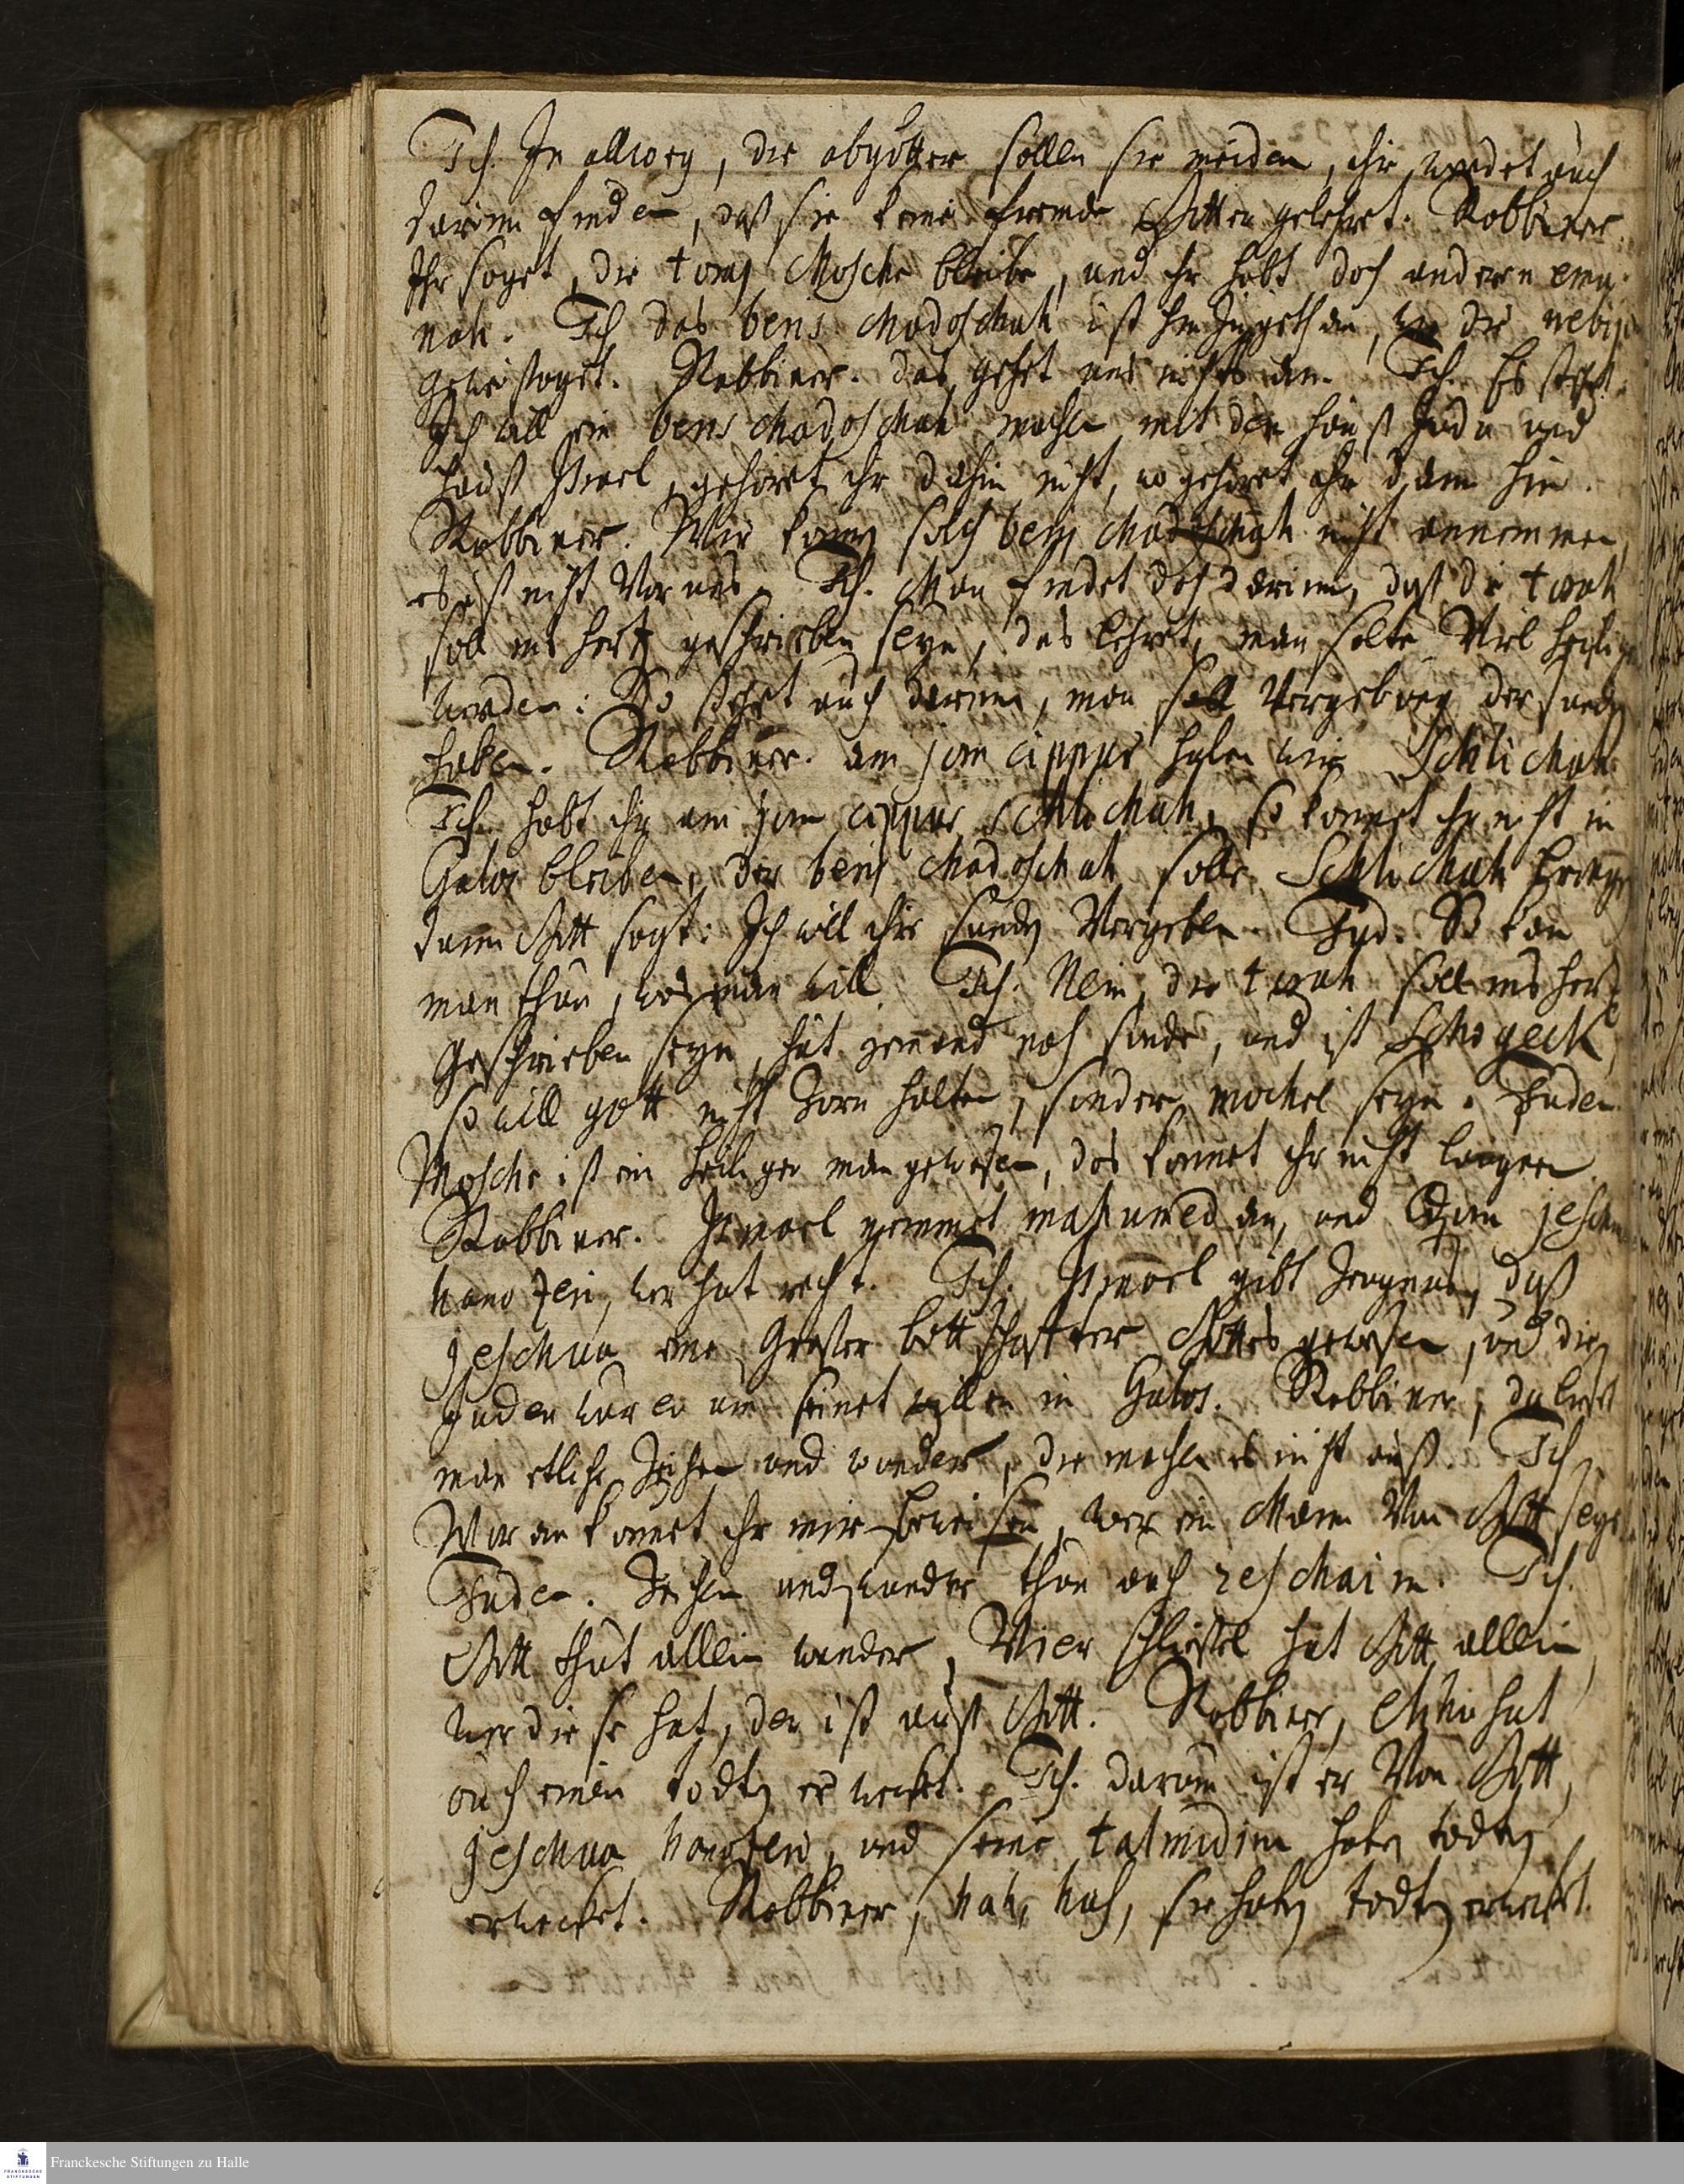 Ich. In allweg, die abgötter sollen sie meiden, ihr werdet auch
darinn finden, daß sie keine fremde Götter gelehret. Rabbiner.
Ihr saget, die torah Mosche bleibe, und ihr habt doch andern emu-
nah. Ich das beris chadoschah ist hinzugethan, wie die nebijm
geweissaget. Rabbiner. das gehet uns nichts an. Ich. Es stehet:
Ich will ein beris chadoschah machen mit dem hauß Juda und
hauß Israel, gehöret ihr dahin nicht, wo gehöret ihr dann hin.
Rabbiner. Wir können solch beris chadoschah nicht annemmen,
es ist nicht vor uns. Ich. Man findet doch darinn, daß die torah
soll ins hertz geschrieben seyn, das lehret, man solte viel heiliger
werden: So stehet auch darinn, man soll vergebung der sünden
haben. Rabbiner. am jom cippur haben wir Schlichah
Ich. habt ihr am jom cippur schlichah, so könnet ihr nicht in
Galos bleiben, der beris chadoschah solle Schlichah bringen
dann Gott sagt: Ich will ihre sünden vergeben. Jud. So kan
man thun, was man will. Ich. Nein, die torah soll ins hertz
geschrieben seyn, hat jemand noch sünde, und ist Schogeck,
so will gott nicht Zorn halten, sonder mochel seyn. Juden.
Mosche ist ein heiliger man gewesen, das könnet ihr nicht laugnen
Rabbiner. Ismael nemmet mahumed an, und Edom jeschua
hanozeri, wer hat recht. Ich. Ismael gibt Zeugnus, daß
Jeschua eine grosser bottschaffter Gottes gewesen, und die
Juden wären um seinet willen in Galos. Rabbiner, da lieset
man etliche Zeichen und wunder, die machen es nicht auß. Ich
Woran könnet ihr mir beweisen, wer ein Mann von Gott seye
Juden. Zeichen und wunder thun auch reschaim. Ich.
Gott thut allein wunder, Vier schlüssel hat Gott allein,
wer diese hat, der ist auß Gott. Rabbiner, Eliahu hat
auch einen todten erwecket. Ich. darum ist er von Gott,
Jeschua hanozeri, und seine talmidim haben todten
erwecket. Rabbiner, hah, hah, sie haben todten erwecket.
Franckesche Stiftungen zu Halle